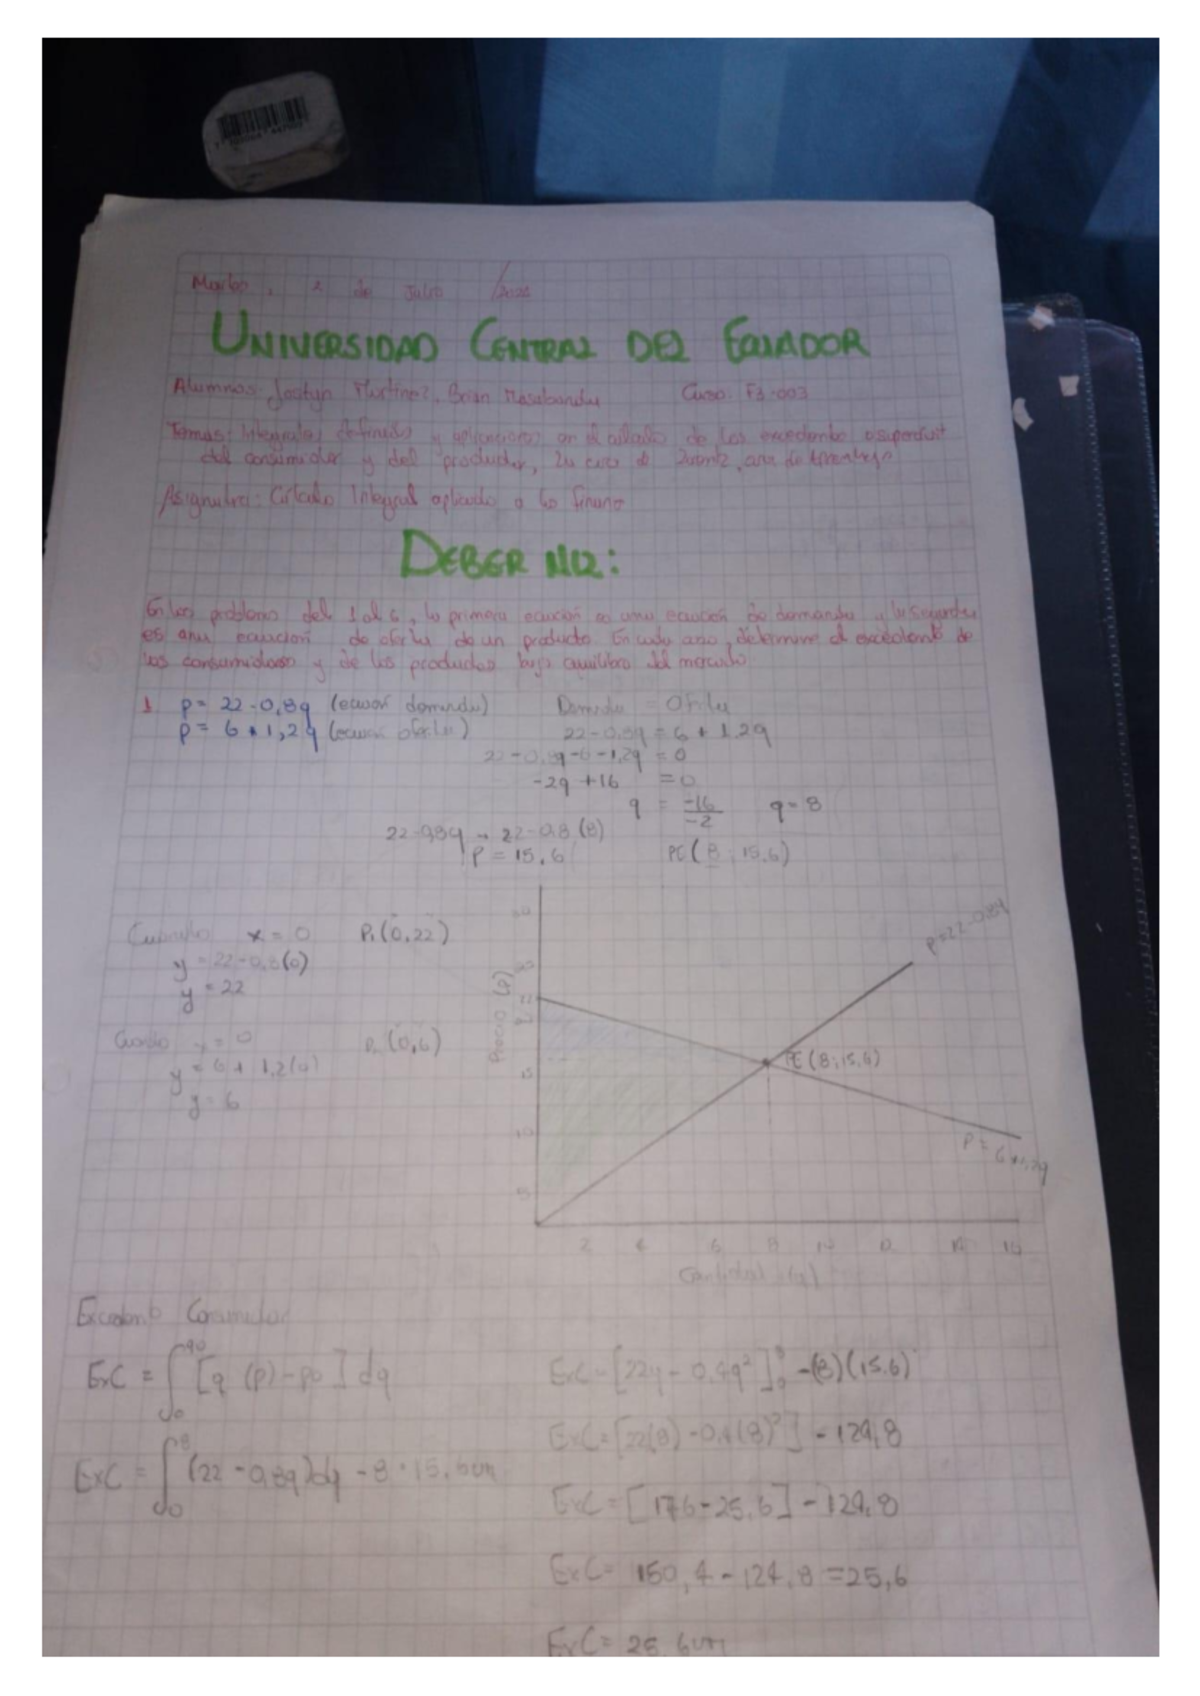 de Julio
UNIVERSIDAD CENTRAL DEL ECUADOR
Alumnos: Joctyn Martinez, Brian Curso: F3-003
Temas: Integrales y aplicaciones en el de los excedentes
del consumidor y del productor, de
Asignatura: Cálculo Integral aplicado a
DEBER N12:
En los problemas del 1 al 6, la primera ecuación es una ecuación de demanda y la segunda
es una ecuación de oferta de un producto. En cada caso, determine el excedente de
los y de los bajo equilibrio del mercado.
1. p= 22-0,8q (ecuación demanda) Demanda = Oferta
p= 6+1,2q (ecuación oferta) 22-0,8q = 6 + 1.2q
22-0,8q-6-1,2q = 0
-2q +16 = 0
q = -16/-2 q=8
22-0,8q → 22-0,8 (8)
p = 15,6 PE(8; 15,6)
30
Cuando x = 0 P₁(0,22)
p=22-0,8q
y = 22-0,8(0)
25
y = 22
22
Precio
Cuando y = 0 P₂ (0,6)
PE (8;15,6)
y = 6 + 1,2(0)
15
y = 6
10
p= 6+1,2q
5
2 4 6 8 10 12 14 16
Cantidad (q)
Excedente Consumidor
ExC = ∫₀^q0 [q (p) - p0] dq ExC=[22q - 0.4q²]₀⁸ -(8)(15.6)
ExC = ∫₀⁸ (22 - 0,8q)dq - 8 · 15,6um ExC=[22(8) - 0,4(8)²] - 124,8
ExC = [176-25,6] - 124,8
ExC= 150,4 - 124,8 = 25,6
ExC= 25,6um